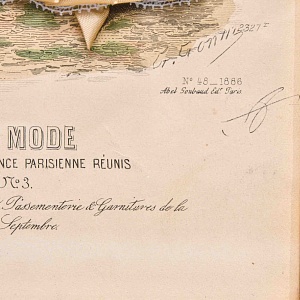 2327
Nº 48_1886
Abel Goubaud Edr Paris
MODE
NCE PARISIENNE RÉUNIS
Nº3.
Passementerie & Garnitures de la
Septembre.